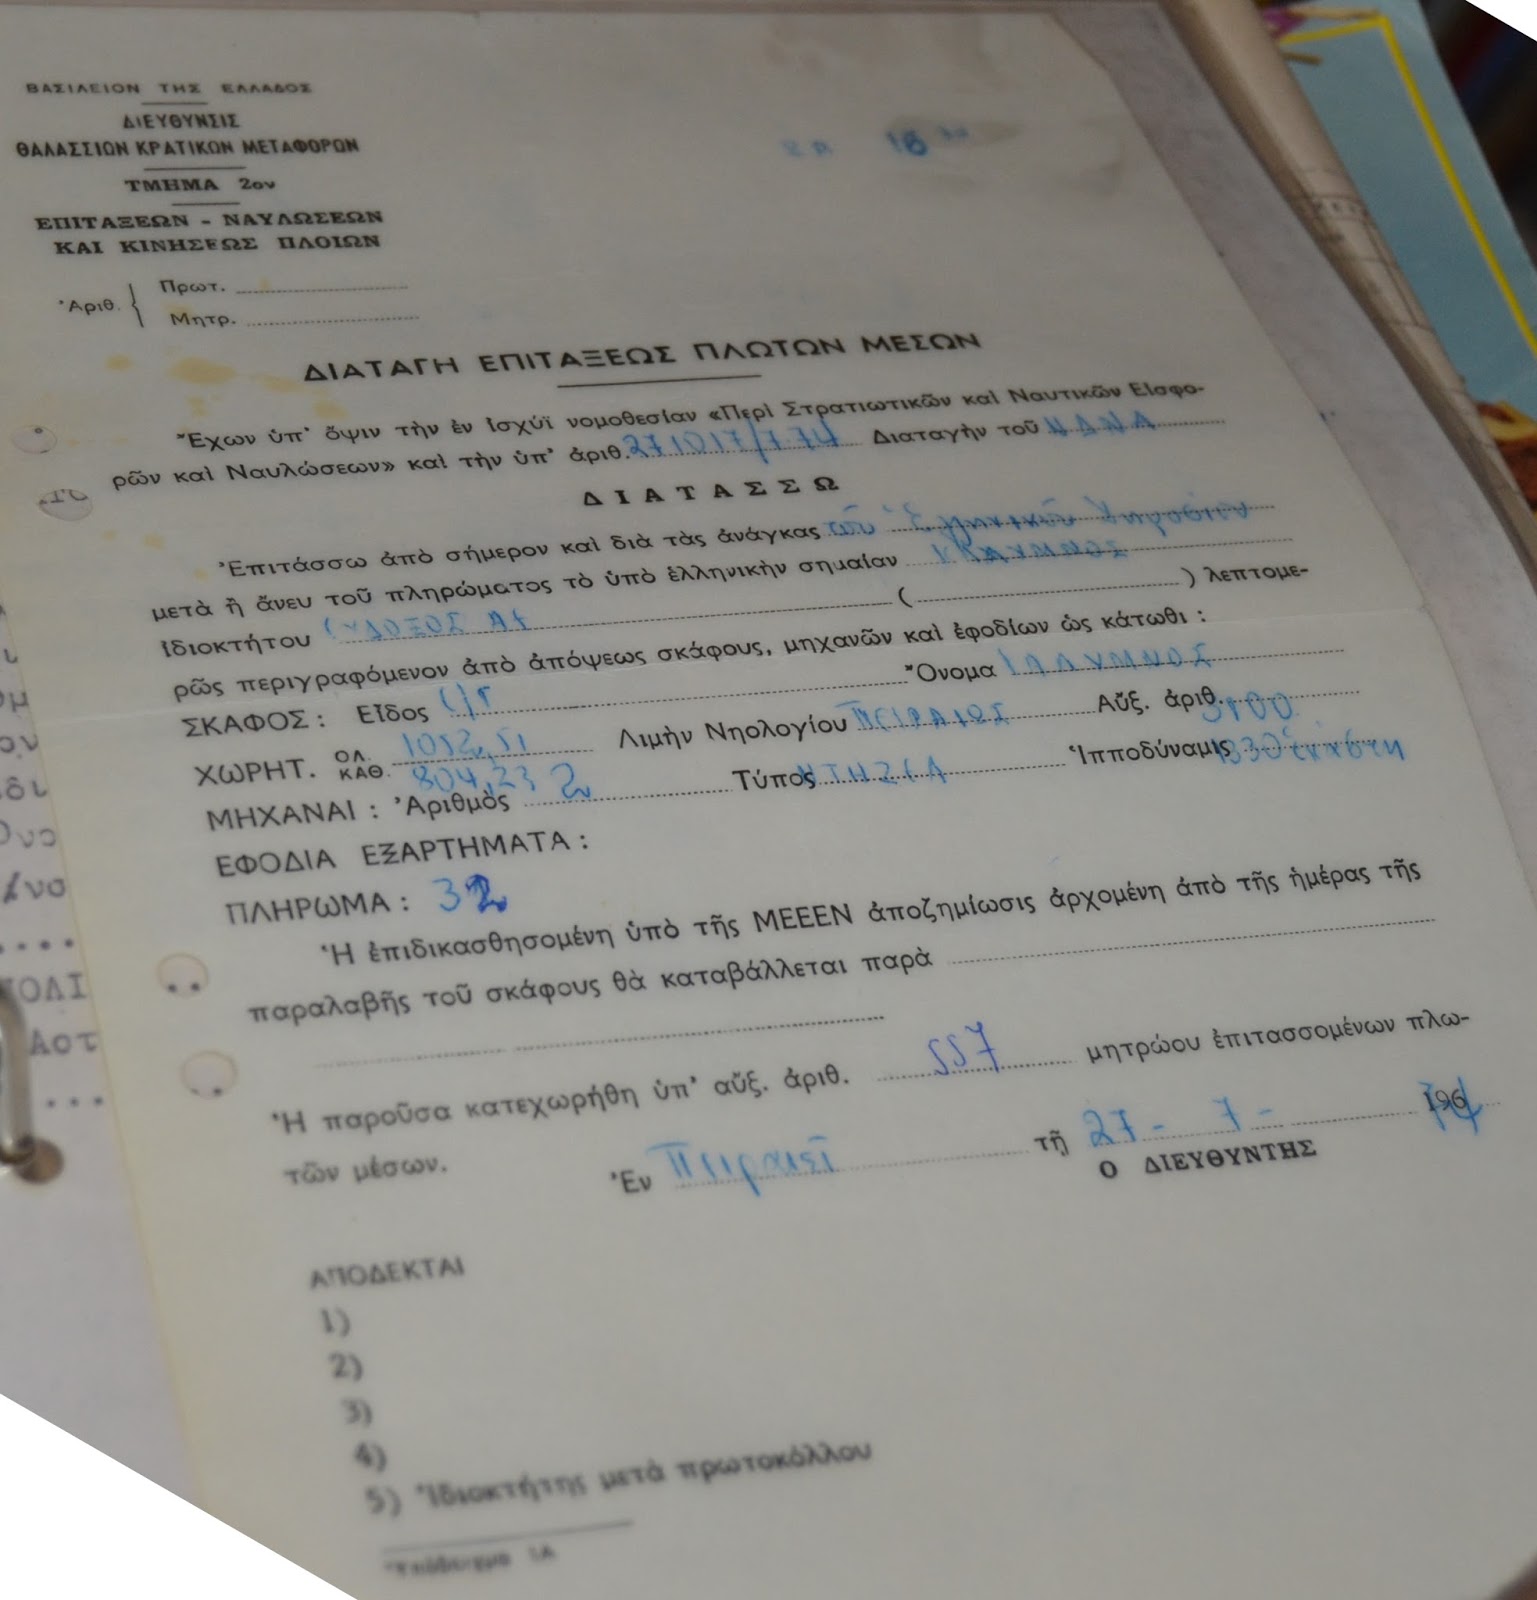 ΒΑΣΙΛΕΙΟΝ ΤΗΣ ΕΛΛΑΔΟΣ
ΔΙΕΥΘΥΝΣΙΣ
ΘΑΛΑΣΣΙΩΝ ΚΡΑΤΙΚΩΝ ΜΕΤΑΦΟΡΩΝ
ΤΜΗΜΑ 2ον
ΕΠΙΤΑΞΕΩΝ - ΝΑΥΛΩΣΕΩΝ
ΚΑΙ ΚΙΝΗΣΕΩΣ ΠΛΟΙΩΝ
Ἀριθ. { Πρωτ.
Μητρ.
16
ΔΙΑΤΑΓΗ ΕΠΙΤΑΞΕΩΣ ΠΛΩΤΩΝ ΜΕΣΩΝ
Ἔχων ὑπ' ὄψιν τὴν ἐν ἰσχύϊ νομοθεσίαν «Περὶ Στρατιωτικῶν καὶ Ναυτικῶν Εἰσφο-
ρῶν καὶ Ναυλώσεων» καὶ τὴν ὑπ' ἀριθ. 271017/7.74 Διαταγὴν τοῦ
ΔΙΑΤΑΣΣΩ
Ἐπιτάσσω ἀπὸ σήμερον καὶ διὰ τὰς ἀνάγκας τοῦ Ἑλληνικοῦ Δημοσίου
μετὰ ἢ ἄνευ τοῦ πληρώματος τὸ ὑπὸ ἑλληνικὴν σημαίαν ΚΑΛΥΜΝΟΣ
ἰδιοκτήτου ( ) λεπτομε-
ρῶς περιγραφόμενον ἀπὸ ἀπόψεως σκάφους, μηχανῶν καὶ ἐφοδίων ὡς κάτωθι :
ΣΚΑΦΟΣ : Εἶδος Ὄνομα ΚΑΛΥΜΝΟΣ
ΧΩΡΗΤ. ΟΛ. 1052,51 Λιμὴν Νηολογίου ΠΕΙΡΑΙΩΣ Αὔξ. ἀριθ.
ΚΑΘ. 804,23
ΜΗΧΑΝΑΙ : Ἀριθμὸς 2 Τύπος ΝΤΗΖΕΛ Ἱπποδύναμις 1330 ἑκάστη
ΕΦΟΔΙΑ ΕΞΑΡΤΗΜΑΤΑ :
ΠΛΗΡΩΜΑ : 32
Ἡ ἐπιδικασθησομένη ὑπὸ τῆς ΜΕΕΕΝ ἀποζημίωσις ἀρχομένη ἀπὸ τῆς ἡμέρας τῆς
παραλαβῆς τοῦ σκάφους θὰ καταβάλλεται παρὰ
Ἡ παροῦσα κατεχωρήθη ὑπ' αὔξ. ἀριθ. 557 μητρώου ἐπιτασσομένων πλω-
τῶν μέσων.
Ἐν Πειραιεῖ τῇ 27 - 7 - 1974
Ο ΔΙΕΥΘΥΝΤΗΣ
ΑΠΟΔΕΚΤΑΙ
1)
2)
3)
4)
5) Ἰδιοκτήτης μετὰ πρωτοκόλλου
Ὑπόδειγμα 1Α